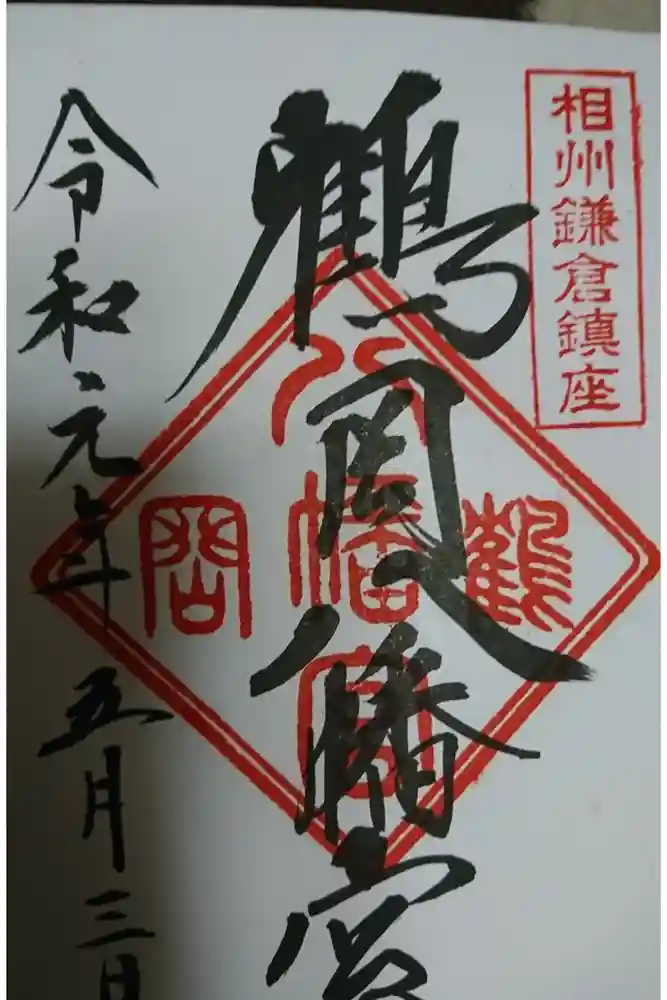 相州鎌倉鎮座
鶴岡八幡宮
鶴岡
八幡宮
令和元年五月三日